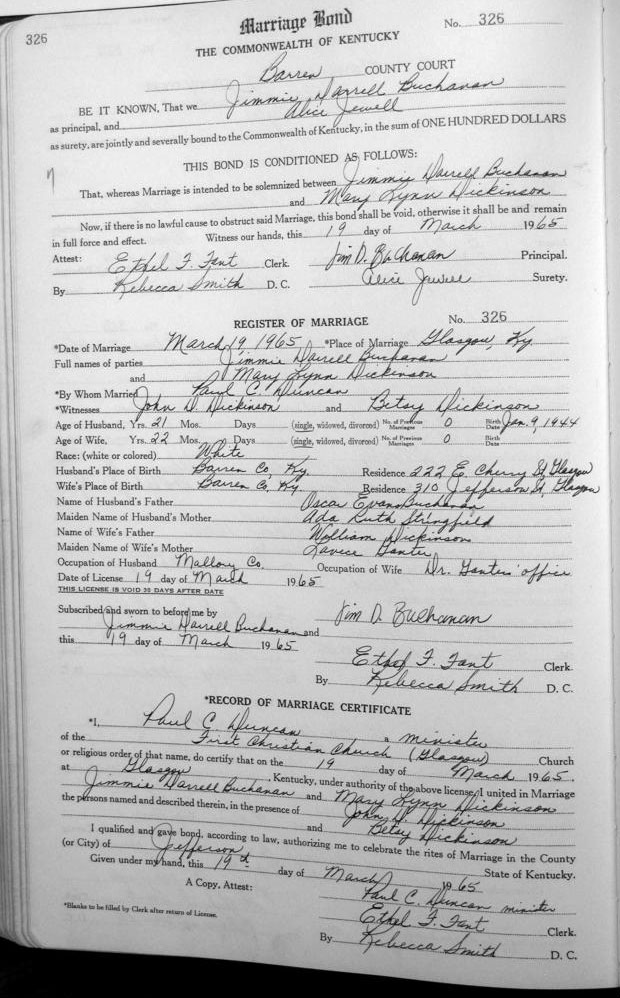 326
Marriage Bond
No. 326
THE COMMONWEALTH OF KENTUCKY
Barren COUNTY COURT
BE IT KNOWN, That we Jimmie Darrell Buchanan
as principal, and Alice Jewell
as surety, are jointly and severally bound to the Commonwealth of Kentucky, in the sum of ONE HUNDRED DOLLARS
THIS BOND IS CONDITIONED AS FOLLOWS:
That, whereas Marriage is intended to be solemnized between Jimmie Darrell Buchanan
and Mary Lynn Dickinson
Now, if there is no lawful cause to obstruct said Marriage, this bond shall be void, otherwise it shall be and remain
in full force and effect. Witness our hands, this 19 day of March 1965
Attest: Ethel F. Fant Clerk. Jim D. Buchanan Principal.
By Rebecca Smith D. C. Alice Jewell Surety.
REGISTER OF MARRIAGE No. 326
*Date of Marriage March 19 1965 *Place of Marriage Glasgow, Ky
Full names of parties Jimmie Darrell Buchanan
and Mary Lynn Dickinson
*By Whom Married Paul C. Duncan
*Witnesses John D. Dickinson and Betsy Dickinson
Age of Husband, Yrs. 21 Mos. Days (single, widowed, divorced) No. of Previous Marriages 0 Birth Date Jan. 9, 1944
Age of Wife, Yrs. 22 Mos. Days (single, widowed, divorced) No. of Previous Marriages 0 Birth Date
Race: (white or colored) White
Husband's Place of Birth Barren Co, Ky. Residence 222 E. Cherry St, Glasgow
Wife's Place of Birth Barren Co, Ky. Residence 310 Jefferson St, Glasgow
Name of Husband's Father Oscar Evan Buchanan
Maiden Name of Husband's Mother Ada Ruth Stringfield
Name of Wife's Father William Dickinson
Maiden Name of Wife's Mother Ganter
Occupation of Husband Mallory Co. Occupation of Wife Dr. Ganters office
Date of License 19 day of March 1965
THIS LICENSE IS VOID 30 DAYS AFTER DATE
Subscribed and sworn to before me by Jim D. Buchanan
Jimmie Darrell Buchanan and
this 19 day of March 1965
Ethel F. Fant Clerk.
By Rebecca Smith D. C.
*RECORD OF MARRIAGE CERTIFICATE
*I, Paul C. Duncan a minister
of the First Christian Church (Glasgow) Church
or religious order of that name, do certify that on the 19 day of March 1965.
at Glasgow, Kentucky, under authority of the above license, I united in Marriage
Jimmie Darrell Buchanan and Mary Lynn Dickinson
the persons named and described therein, in the presence of John D. Dickinson
and Betsy Dickinson
I qualified and gave bond, according to law, authorizing me to celebrate the rites of Marriage in the County
(or City) of Jefferson State of Kentucky.
Given under my hand, this 19th day of March 1965
Paul C. Duncan minister
A Copy, Attest: Ethel F. Fant Clerk.
*Blanks to be filled by Clerk after return of License.
By Rebecca Smith D. C.